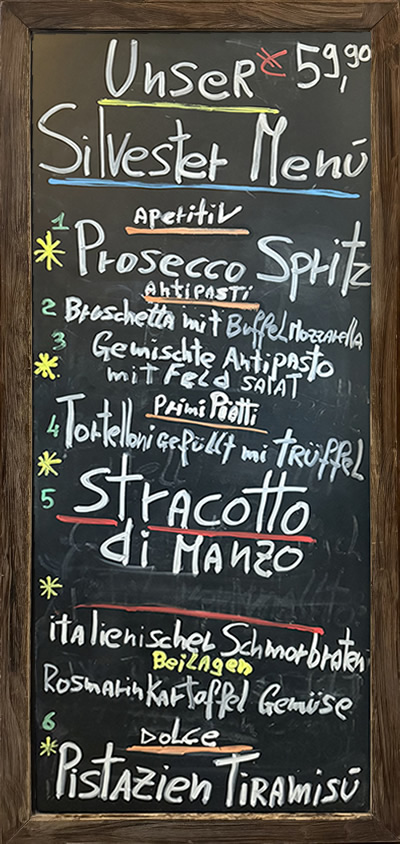 Unser € 59,90
Silvester Menú
Aperitiv
1 Prosecco Spritz
Antipasti
2 Bruschetta mit Büffel Mozzarella
3 Gemischte Antipasto
mit Feld salat
Primi Piatti
4 Tortelloni gefüllt mi Trüffel
5 Stracotto
di Manzo
italienischer Schmorbraten
Beilagen
Rosmarin Kartaffel Gemüse
6 Dolce
Pistazien Tiramisú